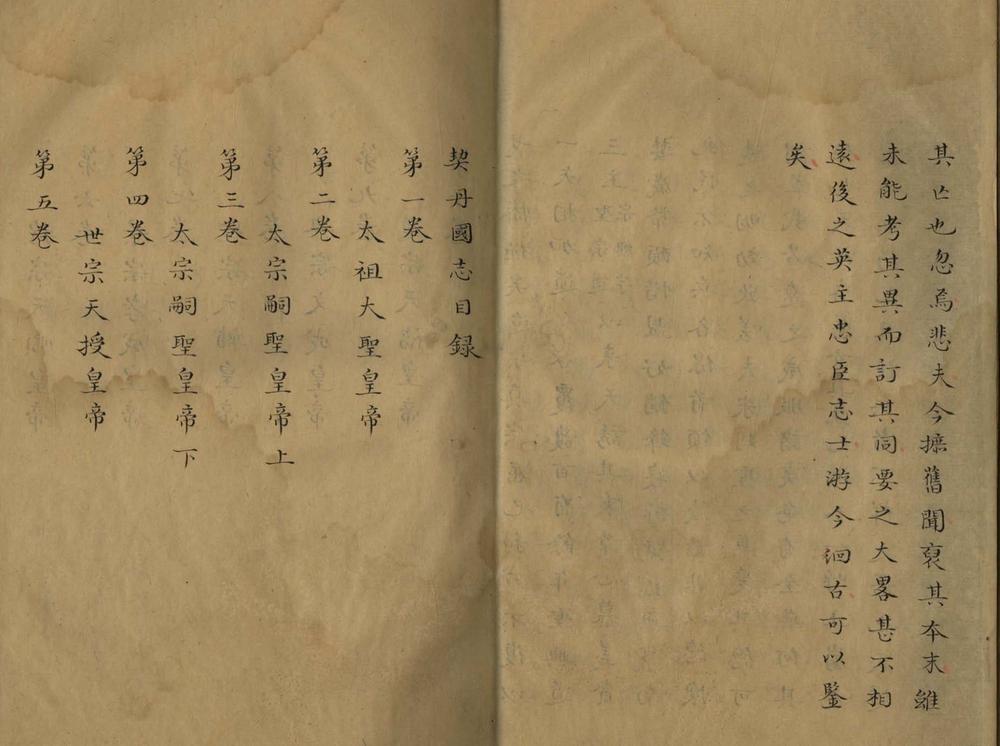 其亡也忽焉悲夫今摭舊聞裒其本末雖
未能考其異而訂其同要之大畧甚不相
遠後之英主忠臣志士游今洄古可以鑒
矣
契丹國志目録
第一卷
太祖大聖皇帝
第二卷
太宗嗣聖皇帝上
第三卷
太宗嗣聖皇帝下
第四卷
世宗天授皇帝
第五卷